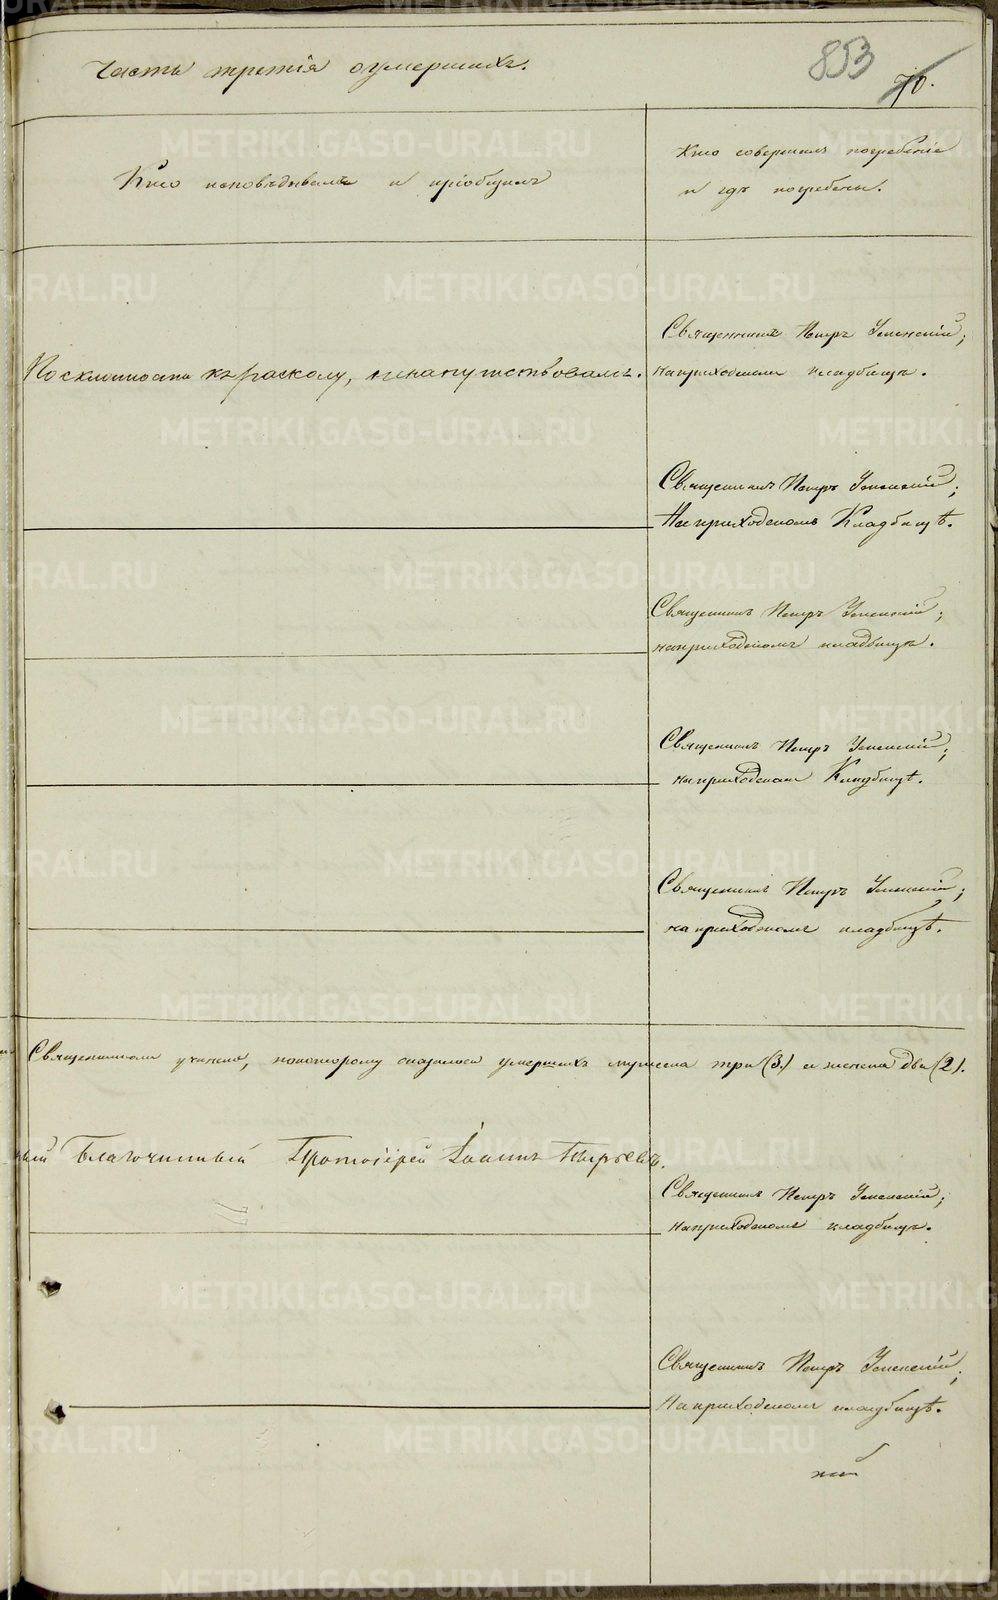 Часть третія о умершихъ.
853
70.
Кто исповѣдывалъ и пріобщалъ
Кто совершалъ погребеніе
и гдѣ погребены.
Священникъ Петръ Успенскій;
По склонности къ расколу, ненапутствовалъ.
наприходскомъ кладбищѣ.
Священникъ Петръ Успенскій;
Наприходскомъ Кладбищѣ.
Священникъ Петръ Успенскій;
наприходскомъ кладбищѣ.
Священникъ Петръ Успенскій;
наприходскомъ Кладбищѣ.
Священникъ Петръ Успенскій;
на приходскомъ кладбищѣ.
Священникомъ учинено, покоторому оказалося умершихъ мужеска три (3.) и женска два (2).
Благочинный Протоіерей Іоаннъ
Священникъ Петръ Успенскій;
Наприходскомъ кладбищѣ.
Священникъ Петръ Успенскій;
На приходскомъ кладбищѣ.
METRIKI.GASO-URAL.RU